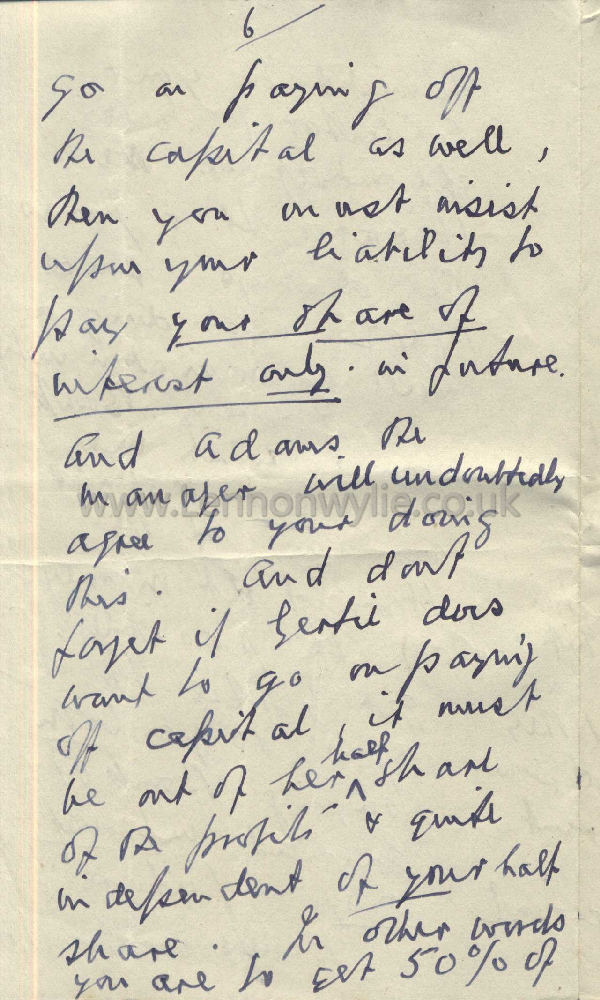 6/
go on paying off
the capital as well,
then you must insist
upon your liability to
pay your share of
interest only. in future.
And Adams the
manager will undoubtedly
www.Lennonwylie.co.uk
agree to your doing
this. And dont
forget if Gertie does
want to go on paying
off capital, it must
be out of her half share
of the profits & quite
independent of your half
share. In other words
you are to get 50% of